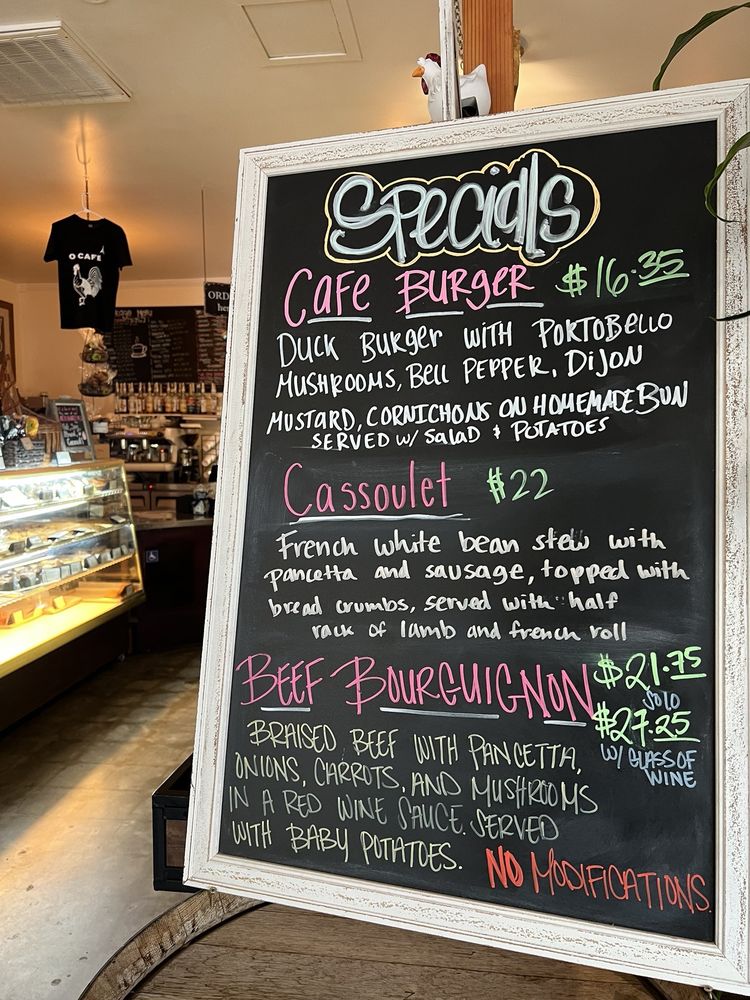 Specials
Cafe Burger $16.35
Duck Burger with Portobello
Mushrooms, Bell Pepper, Dijon
Mustard, Cornichons on Homemade Bun
Served w/ Salad + Potatoes
Cassoulet $22
French white bean stew with
pancetta and sausage, topped with
bread crumbs, served with half
rack of lamb and french roll
BEEF BOURGUIGNON $21.75
SOLO
$27.25
W/ GLASS OF
WINE
BRAISED BEEF WITH PANCETTA,
ONIONS, CARROTS, AND MUSHROOMS
IN A RED WINE SAUCE. SERVED
WITH BABY POTATOES.
NO MODIFICATIONS.
O CAFÉ
ORD